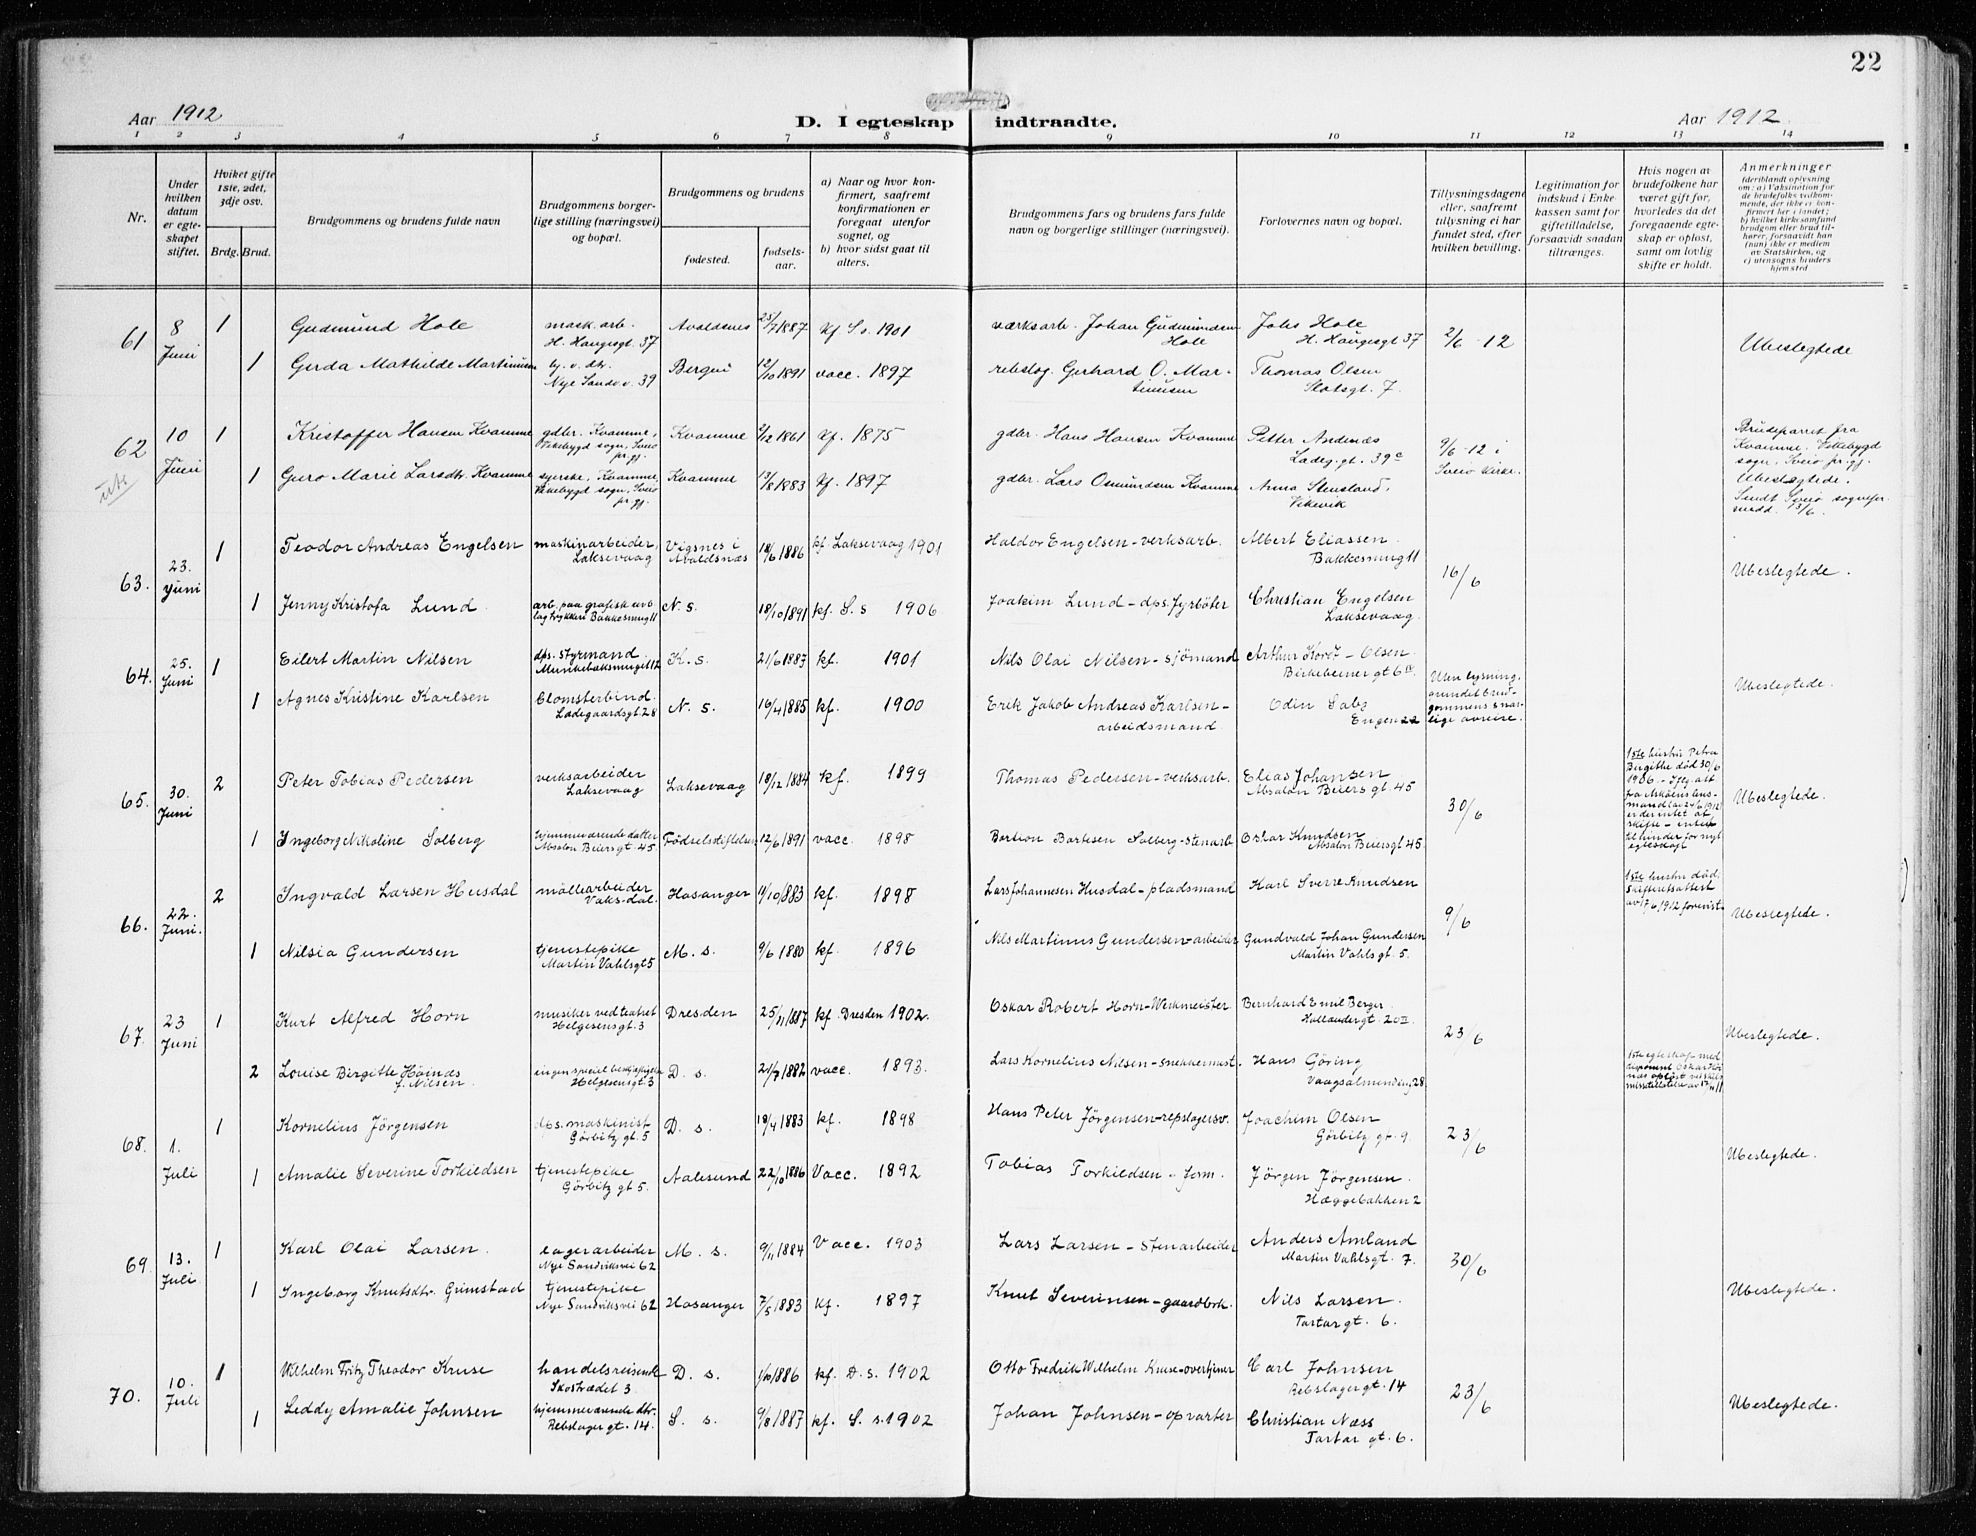 22
Aar 1912
D. I egteskap indtraadte.
Aar 1912.
1 2 3 4 5 6 7 8 9 10 11 12 13 14
Nr.
Under hvilken datum er egteskapet stiftet.
Hviket gifte 1ste, 2det, 3dje osv.
Brdg. Brud.
Brudgommens og brudens fulde navn
Brudgommens borgerlige stilling (næringsvei) og bopæl.
Brudgommens og brudens
fødested.
fødselsaar.
a) Naar og hvor konfirmert, saafremt konfirmationen er foregaat utenfor sognet, og
b) hvor sidst gaat til alters.
Brudgommens fars og brudens fars fulde navn og borgerlige stillinger (næringsvei).
Forlovernes navn og bopæl.
Tillysningsdagene eller, saafremt tillysning ei har fundet sted, efter hvilken bevilling.
Legitimation for indskud i Enkekassen samt for giftetilladelse, forsaavidt saadan tiltrænges.
Hvis nogen av brudefolkene har været gift før, hvorledes da det foregaaende egteskap er opløst, samt om lovlig skifte er holdt.
Anmerkninger
(deriblandt oplysning om: a) Vaksination for brudefolks vedkommende, der ikke er konfirmert her i landet; b) hvilket kirkesamfund brudgom eller brud tilhører, forsaavidt han (hun) ikke er medlem av Statskirken, og c) utensogns bruders hjemsted
61 8 Juni 1 Gudmund Hole mask. arb. H. Haugesgt. 37 Avaldsnes 25/7 1887 kf S. s. 1901 værksarb. Johan Gudmundsen Hole Johs Hole H. Haugesgt 37 2/6 - 12 Ubeslegtede
1 Gerda Mathilde Martinusen hj. v. dtr. Nye Sandv. v. 39 Bergen 12/10 1891 vacc. 1897 rebslag. Gerhard O. Martinusen Thomas Olsen Slotsgt. 7.
62 10 Juni 1 Kristoffer Hansen Kvamme gdbr. Kvamme, Vikebygd sogn, Sveio pr.gj. Kvamme 2/12 1861 kf. 1875 gdbr. Hans Hansen Kvamme Petter Andenæs Ladeg. gt. 39c 9/6 - 12 i Sveio kirke. Brudeparret fra Kvamme, Vikebygd sogn, Sveio pr. gj. Ubeslegtede. Sendt Sveio sogneprmedd. 13/6.
uts
1 Guro Marie Larsdtr Kvamme syerske, Kvamme, Vikebygd sogn, Sveio pr.gj. Kvamme 13/8 1883 kf. 1897 gdbr. Lars Osmundsen Kvamme Anna Stensland, Vikevik
63. 23. Juni 1 Teodor Andreas Engelsen maskinarbeider, Laksevaag Vigsnes i Avaldsnæs 18/6 1886 kf Laksevaag 1901 Haldor Engelsen - verksarb. Albert Eliassen Bakkesmug 11 16/6 Ubeslegtede.
1 Jenny Kristofa Lund arb. paa grafisk avblagtrykkeri Bakkesmug 11 N. s. 18/10 1891 kf. S. s 1906 Joakim Lund - dps. fyrböter Christian Engelsen Laksevaag.
64. 25. Juni 1 Eilert Martin Nilsen dps. styrmand. Munkebæksmuget 12 K. s. 21/6 1887 kf. 1901 Nils Olai Nilsen - sjömand Arthur Koref - Olsen Birkebeinergt 6 Uten lysning, grundet brudgommens snarlige avreise. Ubeslegtede.
1 Agnes Kristine Karlsen blomsterbind. Ladegaardsgt. 28 N. s. 16/4 1885 kf. 1900 Erik Jakob Andreas Karlsen - arbeidsmand Odin Sabø Engen 22
65. 30. Juni 2 Peter Tobias Pedersen verksarbeider Laksevaag Laksevaag 18/12 1884 kf. 1899 Thomas Pedersen - verksarb. Elias Johansen Absalon Beiersgt. 45 30/6 1ste hustru Petra Birgitte död 30/6 1906. - Iflg. att. fra Askøens lensmand av 24/6 1912 er der intet at skifte - intet til hinder for nyt egteskap Ubeslegtede.
1 Ingeborg Nikoline Solberg hjemmeværende datter Absalon Beiersgt. 45. Födselsstiftelsen 12/6 1891 vacc. 1898 Bertson Bertesen Solberg - stenarb. Oskar Knudsen Absalon Beiersgt 45.
66. 22. Juni. 2 Ingvald Larsen Husdal möllearbeider Vaks-dal. Hosanger 11/10 1883 kf. 1898 Lars Johannesen Husdal - pladsmand Karl Sverre Knudsen 9/6 1ste hustru död, skifteretsattest av 17/6 1912 forevist. Ubeslegtede.
1 Nilsia Gundersen tjenestepike Martin Vahlsgt 5 M. s. 9/6 1880 kf. 1896 Nils Martinus Gundersen - arbeider Gundvald Johan Gundersen Martin Vahlsgt. 5.
67. 23 Juni 1 Kurt Alfred Horn musiker ved teatret Helgesensgt. 3 Dresden 25/11 1887 kf. Dresden 1902. Oskar Robert Horn - Werkmeister Bernhard Emil Berger Hollandergt. 20 II 23/6 Ubeslegtede.
2 Louise Birgitte Höinæs f. Nilsen ingen speciel beskjæftigelse Helgesensgt. 3 D. s. 21/7 1882 vacc. 1893. Lars Kornelius Nilsen - snekkermst. Hans Göring Vaagsalmending 28. 1ste egteskap med
68. 1. Juli 1 Kornelius Jörgensen dps. maskinist Görbitz gt. 5 D. s. 18/4 1883 kf. 1898 Hans Peter Jörgensen - repslagersv. Joachim Olsen Görbitz gt. 9. 23/6 Ubeslegtede.
1 Amalie Severine Torkildsen tjenestepike Görbitz gt 5. Aalesund 22/10 1886 Vacc. 1892 Tobias Torkildsen - form. Jörgen Jörgensen. Hæggebakken 2
69. 13. Juli 1 Karl Olai Larsen. lagerarbeider Nye Sandviksvei 62 M. s. 9/11 1884 Vacc. 1903 Lars Larsen - stenarbeider Anders Amland Martin Vahlsgt. 7. 30/6 Ubeslegtede.
1 Ingeborg Knutsdtr. Grimstad tjenestepike Nye Sandviksvei 62 Hosanger 7/5 1883 kf. 1897 Knut Severinsen - gaardbrk. Nils Larsen. Tartargt. 6.
70. 10. Juli 1 Wilhelm Fritz Theodor Kruse handelsreisende Skostrædet 3 D. s. 1/10 1886 kf. D. s. 1902 Otto Fredrik Wilhelm Kruse - overtjener Carl Johnsen Rebslagergt. 14 23/6 Ubeslegtede.
1 Leddy Amalie Johnsen hjemmeværende dtr. Rebslager gt. 14. S. s. 9/8 1887 kf. S. s. 1902 Johan Johnsen - opvarter Christian Næss Tartar gt. 6.